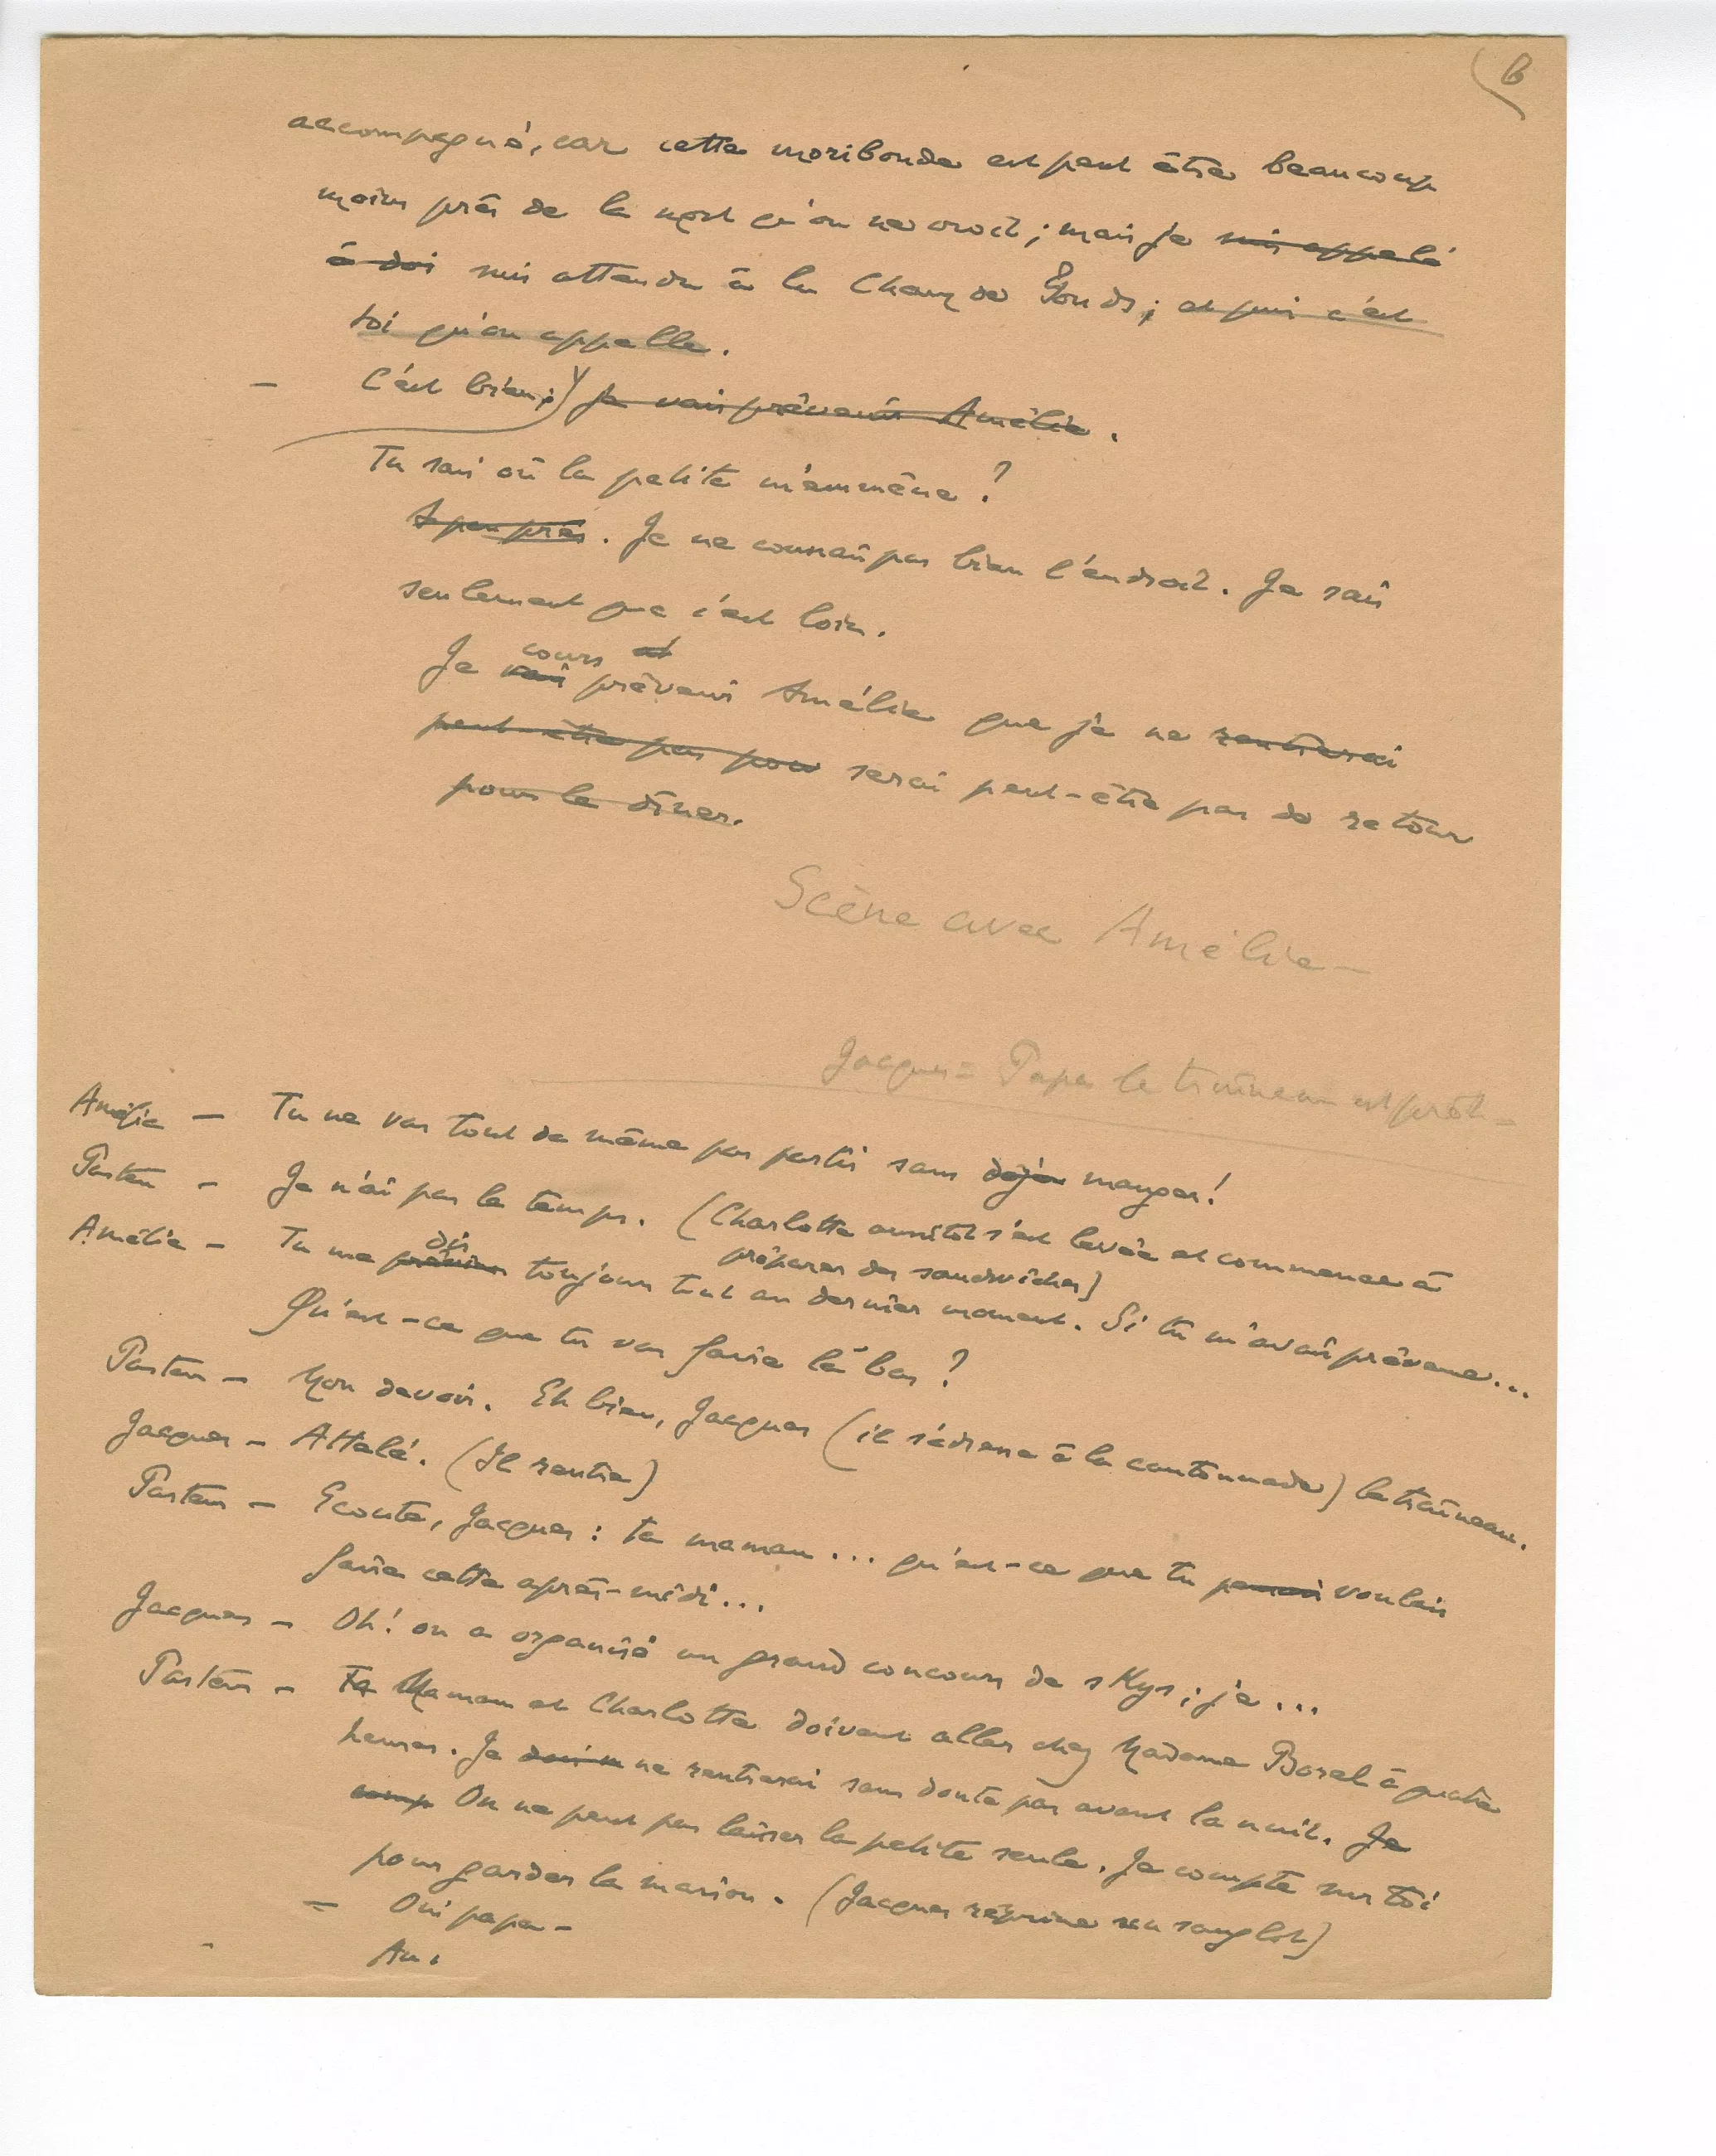 6
accompagné, car cette moribonde est peut être beaucoup
moins près de la mort qu'on ne croit ; mais je suis appelé
à doi suis attendu à la Chaux de Fonds ; et puis c'est
toi qu'on appelle.
— C'est bien ; je vais prévenir Amélie.
Tu sais où la petite m'emmène ?
A peu près. Je ne connais pas bien l'endroit. Je sais
seulement que c'est loin.
cours et
Je vais prévenir Amélie que je ne rentrerai
peut-être pas pour serai peut-être pas de retour
pour le dîner.
Scène avec Amélie —
Jacques = Papa le traîneau est prêt =
Amélie — Tu ne vas tout de même pas partir sans déjeu manger !
Pasteur — Je n'ai pas le temps. (Charlotte aussitôt s'est levée et commence à
préparer des sandwiches)
dis
Amélie — Tu me préviens toujours tout au dernier moment. Si tu m'avais prévenue...
Qu'est-ce que tu vas faire là bas ?
Pasteur — Mon devoir. Eh bien, Jacques (il s'adresse à la cantonnade) le traîneau.
Jacques — Attelé. (Il rentre)
Pasteur — Ecoute, Jacques : ta maman ... qu'est-ce que tu pensais voulais
faire cette après-midi...
Jacques — Oh ! on a organisé un grand concours de skys ; je ...
Pasteur — Ta Maman et Charlotte doivent aller chez Madame Borel à quatre
heures. Je ne rentrerai sans doute pas avant la nuit. Je
comp On ne peut pas laisser la petite seule. Je compte sur toi
pour garder la maison. (Jacques réprime un sanglot)
— Oui papa —
Am.